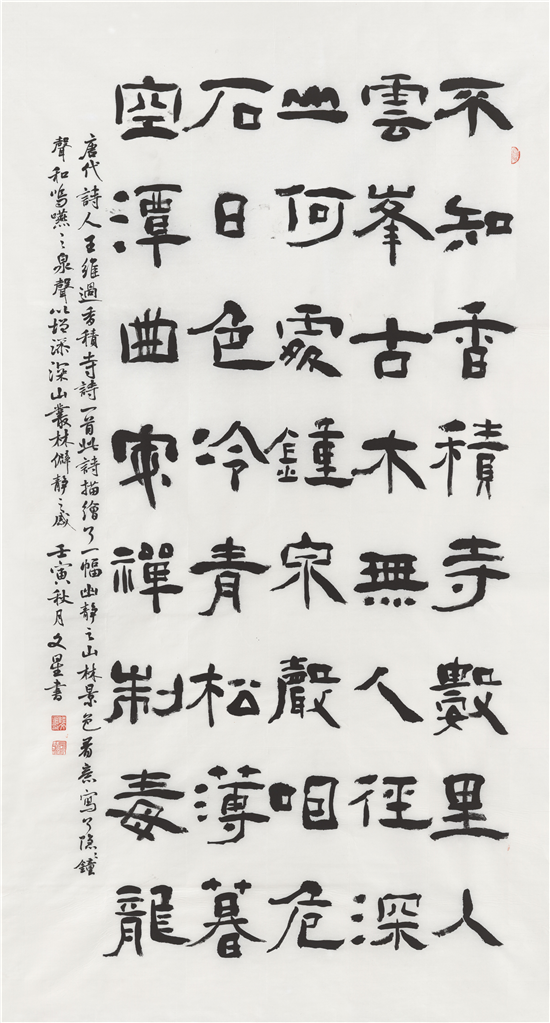 不知香積寺數里人
雲峯古木無人徑深
山何處鍾泉聲咽危
石日色冷青松薄暮
空潭曲安禪制毒龍
唐代詩人王維過香積寺詩一首此詩描繪了一幅幽靜之山林景色着意寫了隱隱鐘
聲和嗚嚥之泉聲以增添深山叢林僻靜之感 壬寅秋月文星書